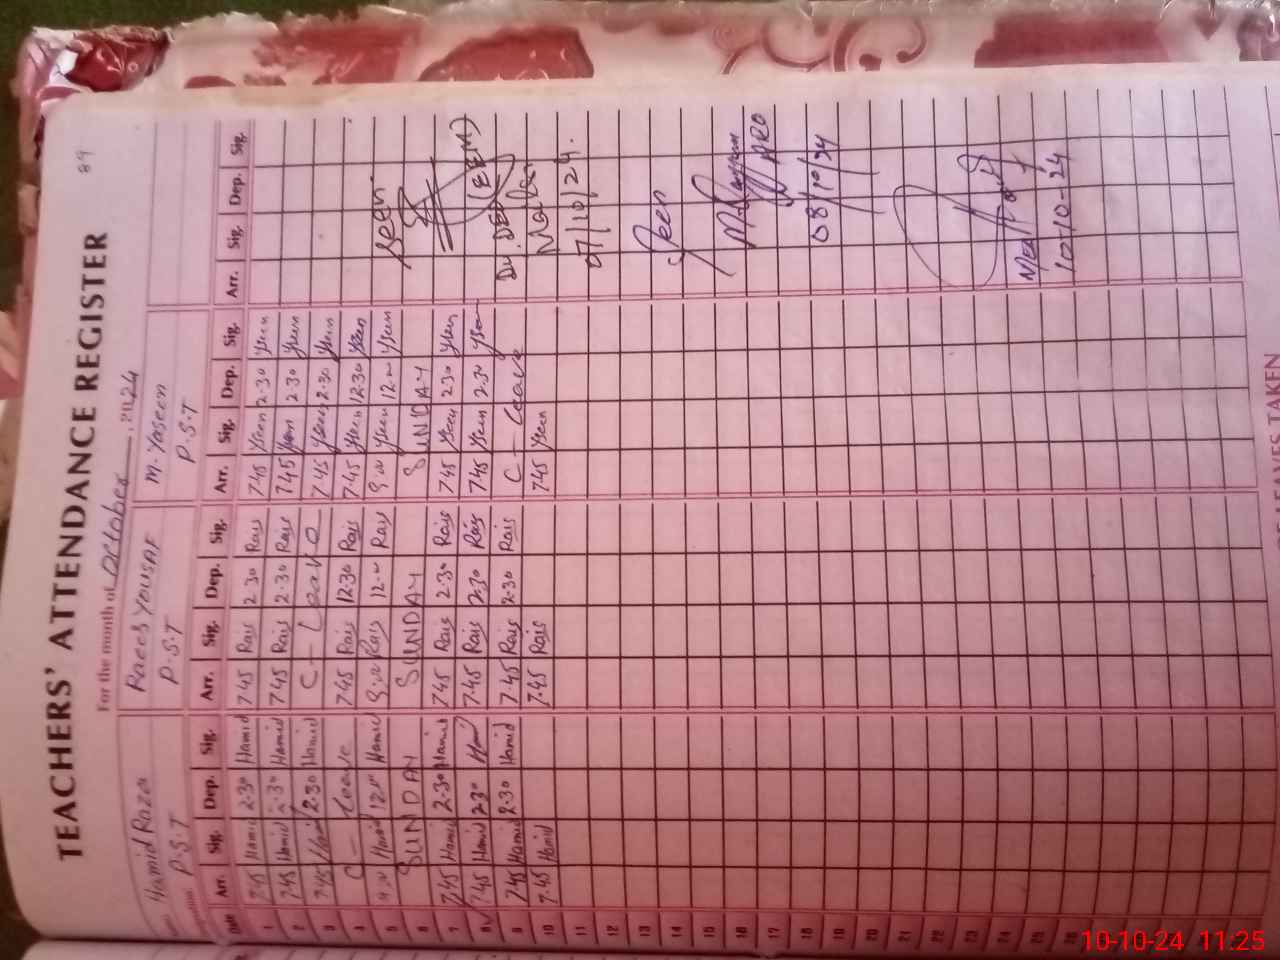 89
TEACHERS' ATTENDANCE REGISTER
For the month of October, 2024
Hamid Raza Raees Yousaf M. Yaseen
P.S.T P.S.T P.S.T
Date Arr. Sig. Dep. Sig. Arr. Sig. Dep. Sig. Arr. Sig. Dep. Sig. Arr. Sig. Dep. Sig.
1 7.45 Hamid 2.30 Hamid 7.45 Rais 2.30 Rais 7.45 Yseen 2.30 Yseen
2 7.45 Hamid 2.30 Hamid 7.45 Rais 2.30 Rais 7.45 Yseen 2.30 Yseen
3 7.45 Hamid 2.30 Hamid C - Leave 7.45 Yseen 2.30 Yseen
4 C - Leave 7.45 Rais 12.30 Rais 7.45 Yseen 12.30 Yseen
5 9.00 Hamid 12.00 Hamid 9.00 Rais 12.00 Rais 9.00 Yseen 12.00 Yseen Seen
6 SUNDAY SUNDAY SUNDAY
7 7.45 Hamid 2.30 Hamid 7.45 Rais 2.30 Rais 7.45 Yseen 2.30 Yseen
8 7.45 Hamid 2.30 Hamid 7.45 Rais 2.30 Rais 7.45 Yseen 2.30 Yseen (EEM)
9 7.45 Hamid 2.30 Hamid 7.45 Rais 2.30 Rais C - Leave
10 7.45 Hamid 7.45 Rais 7.45 Yseen
11 07/10/24.
12
13 Seen
14
15
16
17
18 08/10/24
19
20
21
22
23
24
25 MEA
26 10-10-24
LEAVES TAKEN
10-10-24 11:25